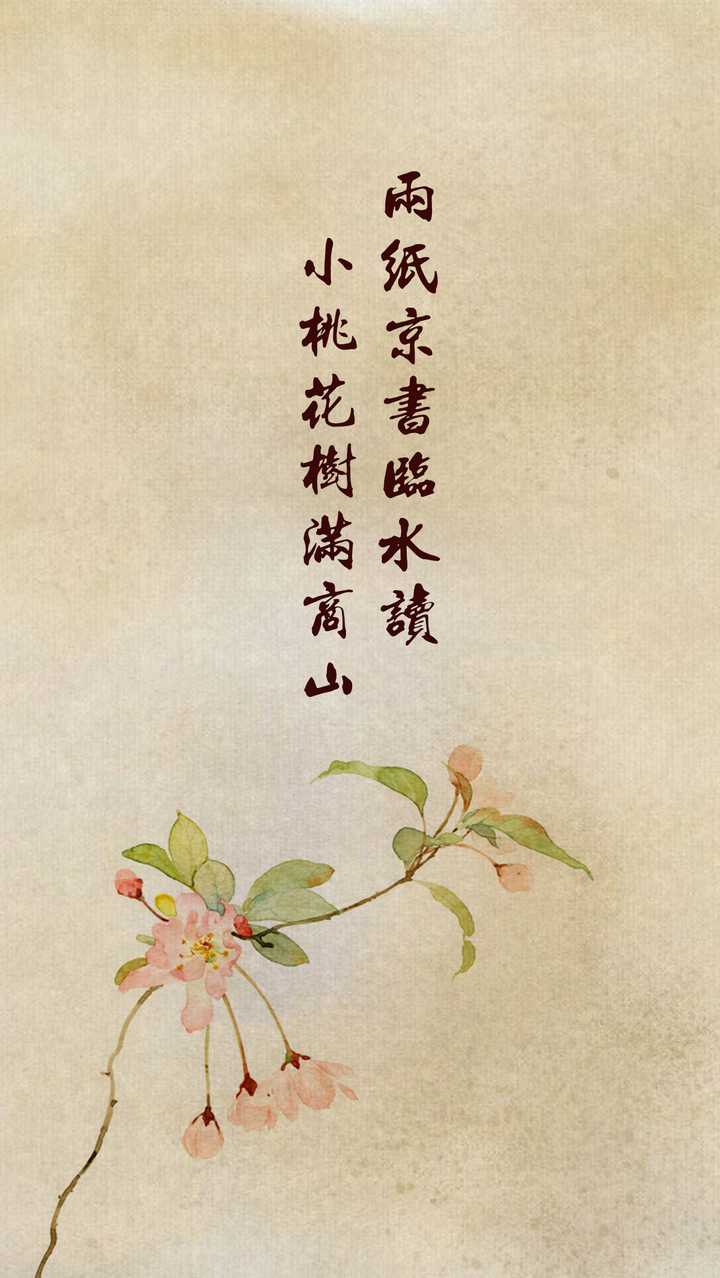 雨紙京書臨水讀
小桃花樹滿商山